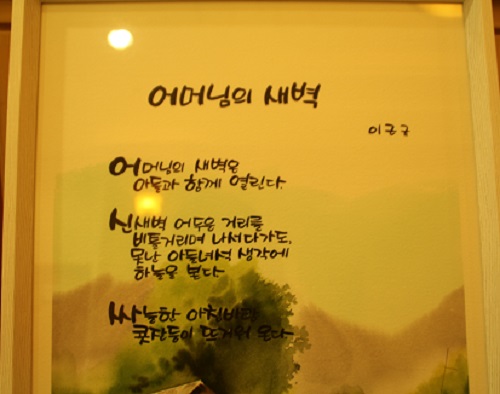 어머님의 새벽
이근규
어머님의 새벽은
아들과 함께 열린다.
신새벽 어두운 거리를
비틀거리며 나서다가도,
못난 아들녀석 생각에
하늘을 본다.
싸늘한 아침바람
콧잔등이 뜨거워 온다